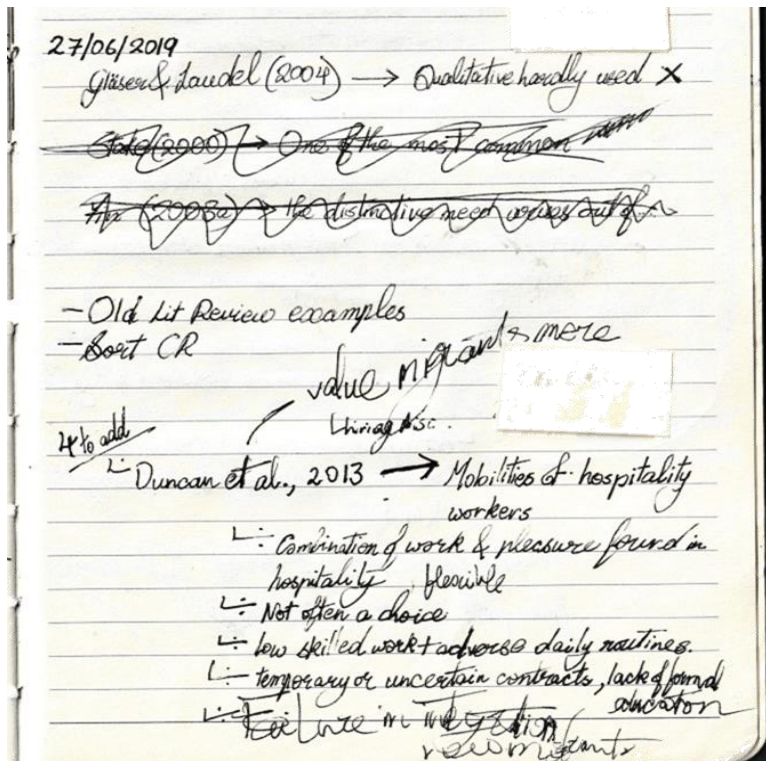 27/06/2019
Gläser & Laudel (2004) → Qualitative hardly used ×
Stake (2000) → One of the most common
(2003a) → the distinctive need arises out of
- Old Lit Review examples
- Sort CR
value migrants more
4 to add
Duncan et al., 2013 → Mobilities of hospitality
workers
Combination of work & pleasure found in
hospitality, flexible
Not often a choice
low skilled work + adverse daily routines.
temporary or uncertain contracts, lack of formal
education
Failure in integration